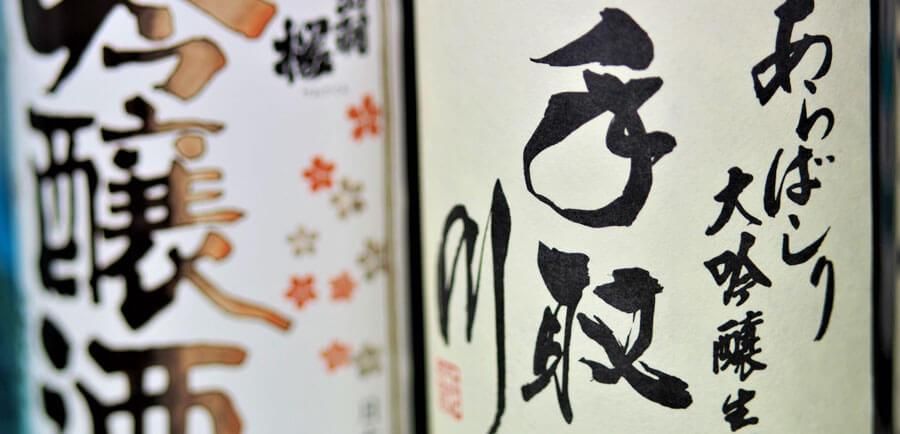 あらばしり
大吟醸生
手取
川
出羽
桜
吟醸酒